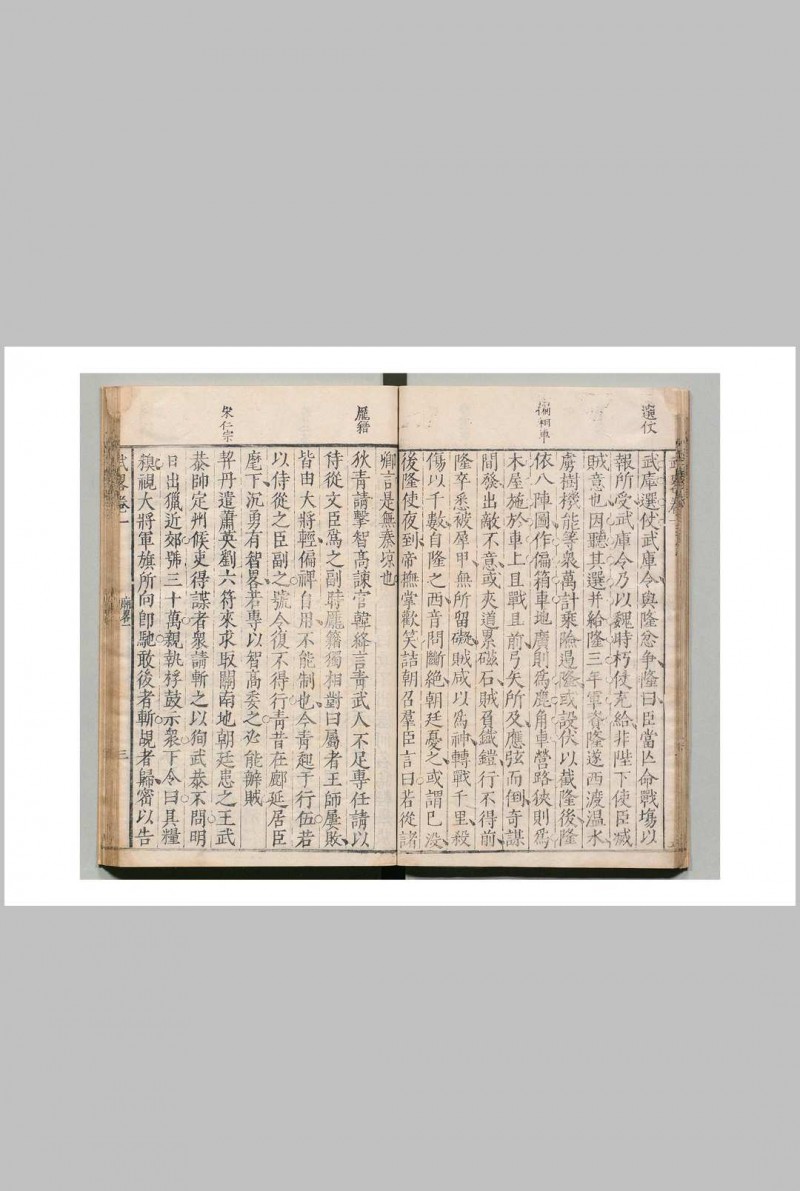 選仗
武庫選仗武庫令與隆忿争隆曰臣當亡命戰塲以
報所受武庫令乃以魏時朽仗充給非陛下使臣滅
賊意也因聽其選并給隆三年軍資隆遂西渡温水
虜樹機能等衆萬計乘險遏隆或設伏以截隆後隆
偏箱車
依八陣圖作偏箱車地廣則爲鹿角車營路狹則爲
木屋施於車上且戰且前弓矢所及應弦而倒奇謀
間發出敵不意或夾道累磁石賊負鐵鎧行不得前
隆卒悉被犀甲無所留礙賊咸以爲神轉戰千里殺
傷以千數自隆之西音問斷絶朝廷憂之或謂已没
後隆使夜到帝撫掌歡笑詰朝召羣臣言曰若從諸
卿言是無秦凉也
龎籍
狄青請擊智高諫官韓絳言青武人不足專任請以
侍從文臣爲之副時龎籍獨相對曰屬者王師屢敗
皆由大將輕偏裨自用不能制也今青起于行伍若
以侍從之臣副之號令復不得行青昔在鄜延居臣
麾下沉勇有智畧若專以智高委之必能辦賊
宋仁宗
契丹遣蕭英劉六符來求取關南地朝廷患之王武
恭帥定州候吏得諜者衆請斬之以狥武恭不問明
日出獵近郊號三十萬親執桴鼓示衆下令曰具糧
糗視大將軍旗所向即馳敢後者斬覘者歸密以告
武畧卷一
廟畧一
三